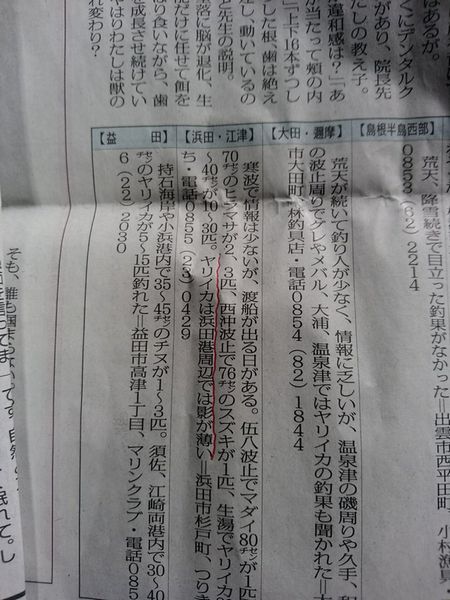 はあるが。
くにデンタルク
があり、院長先
たしの教え子。
違和感は？」あ
が当たって頬の内
「上下16本ずつし
した根、歯は絶え
足し、動いているの
と先生の説明。
落に脳が退化、生
能だけに任せて餌を
ぼり食いながら、歯
を成長させ続けてい
やはりわたしは獣の
れ変わり？
【島根半島西部】
荒天、降雪続きで目立った釣果がなかった＝出雲市西平田町、小村漁具
0853（62）2214
【大田・邇摩】
荒天が続いて釣り人が少なく、情報に乏しいが、温泉津の磯周りや久手、和
の波止周りでグレやメバル、大浦、温泉津ではヤリイカの釣果も聞かれた＝大
市大田町、林釣具店・電話0854（82）1844
【浜田・江津】
寒波で情報は少ないが、渡船が出る日がある。伍八波止でマダイ80㌢が1匹
70㌢のヒラマサが2、3匹、西沖波止で76㌢のスズキが1匹、生湯でヤリイカ
～40㌢が10～30匹。ヤリイカは浜田港周辺では影が薄い＝浜田市杉戸町、つり
ち・電話0855（23）0429
【益田】
持石海岸や小浜港内で35～45㌢のチヌが1～3匹。須佐、江崎両港内で30～40
㌢のヤリイカが5～15匹釣れた＝益田市高津1丁目、マリンクラブ・電話085
6（22）2030